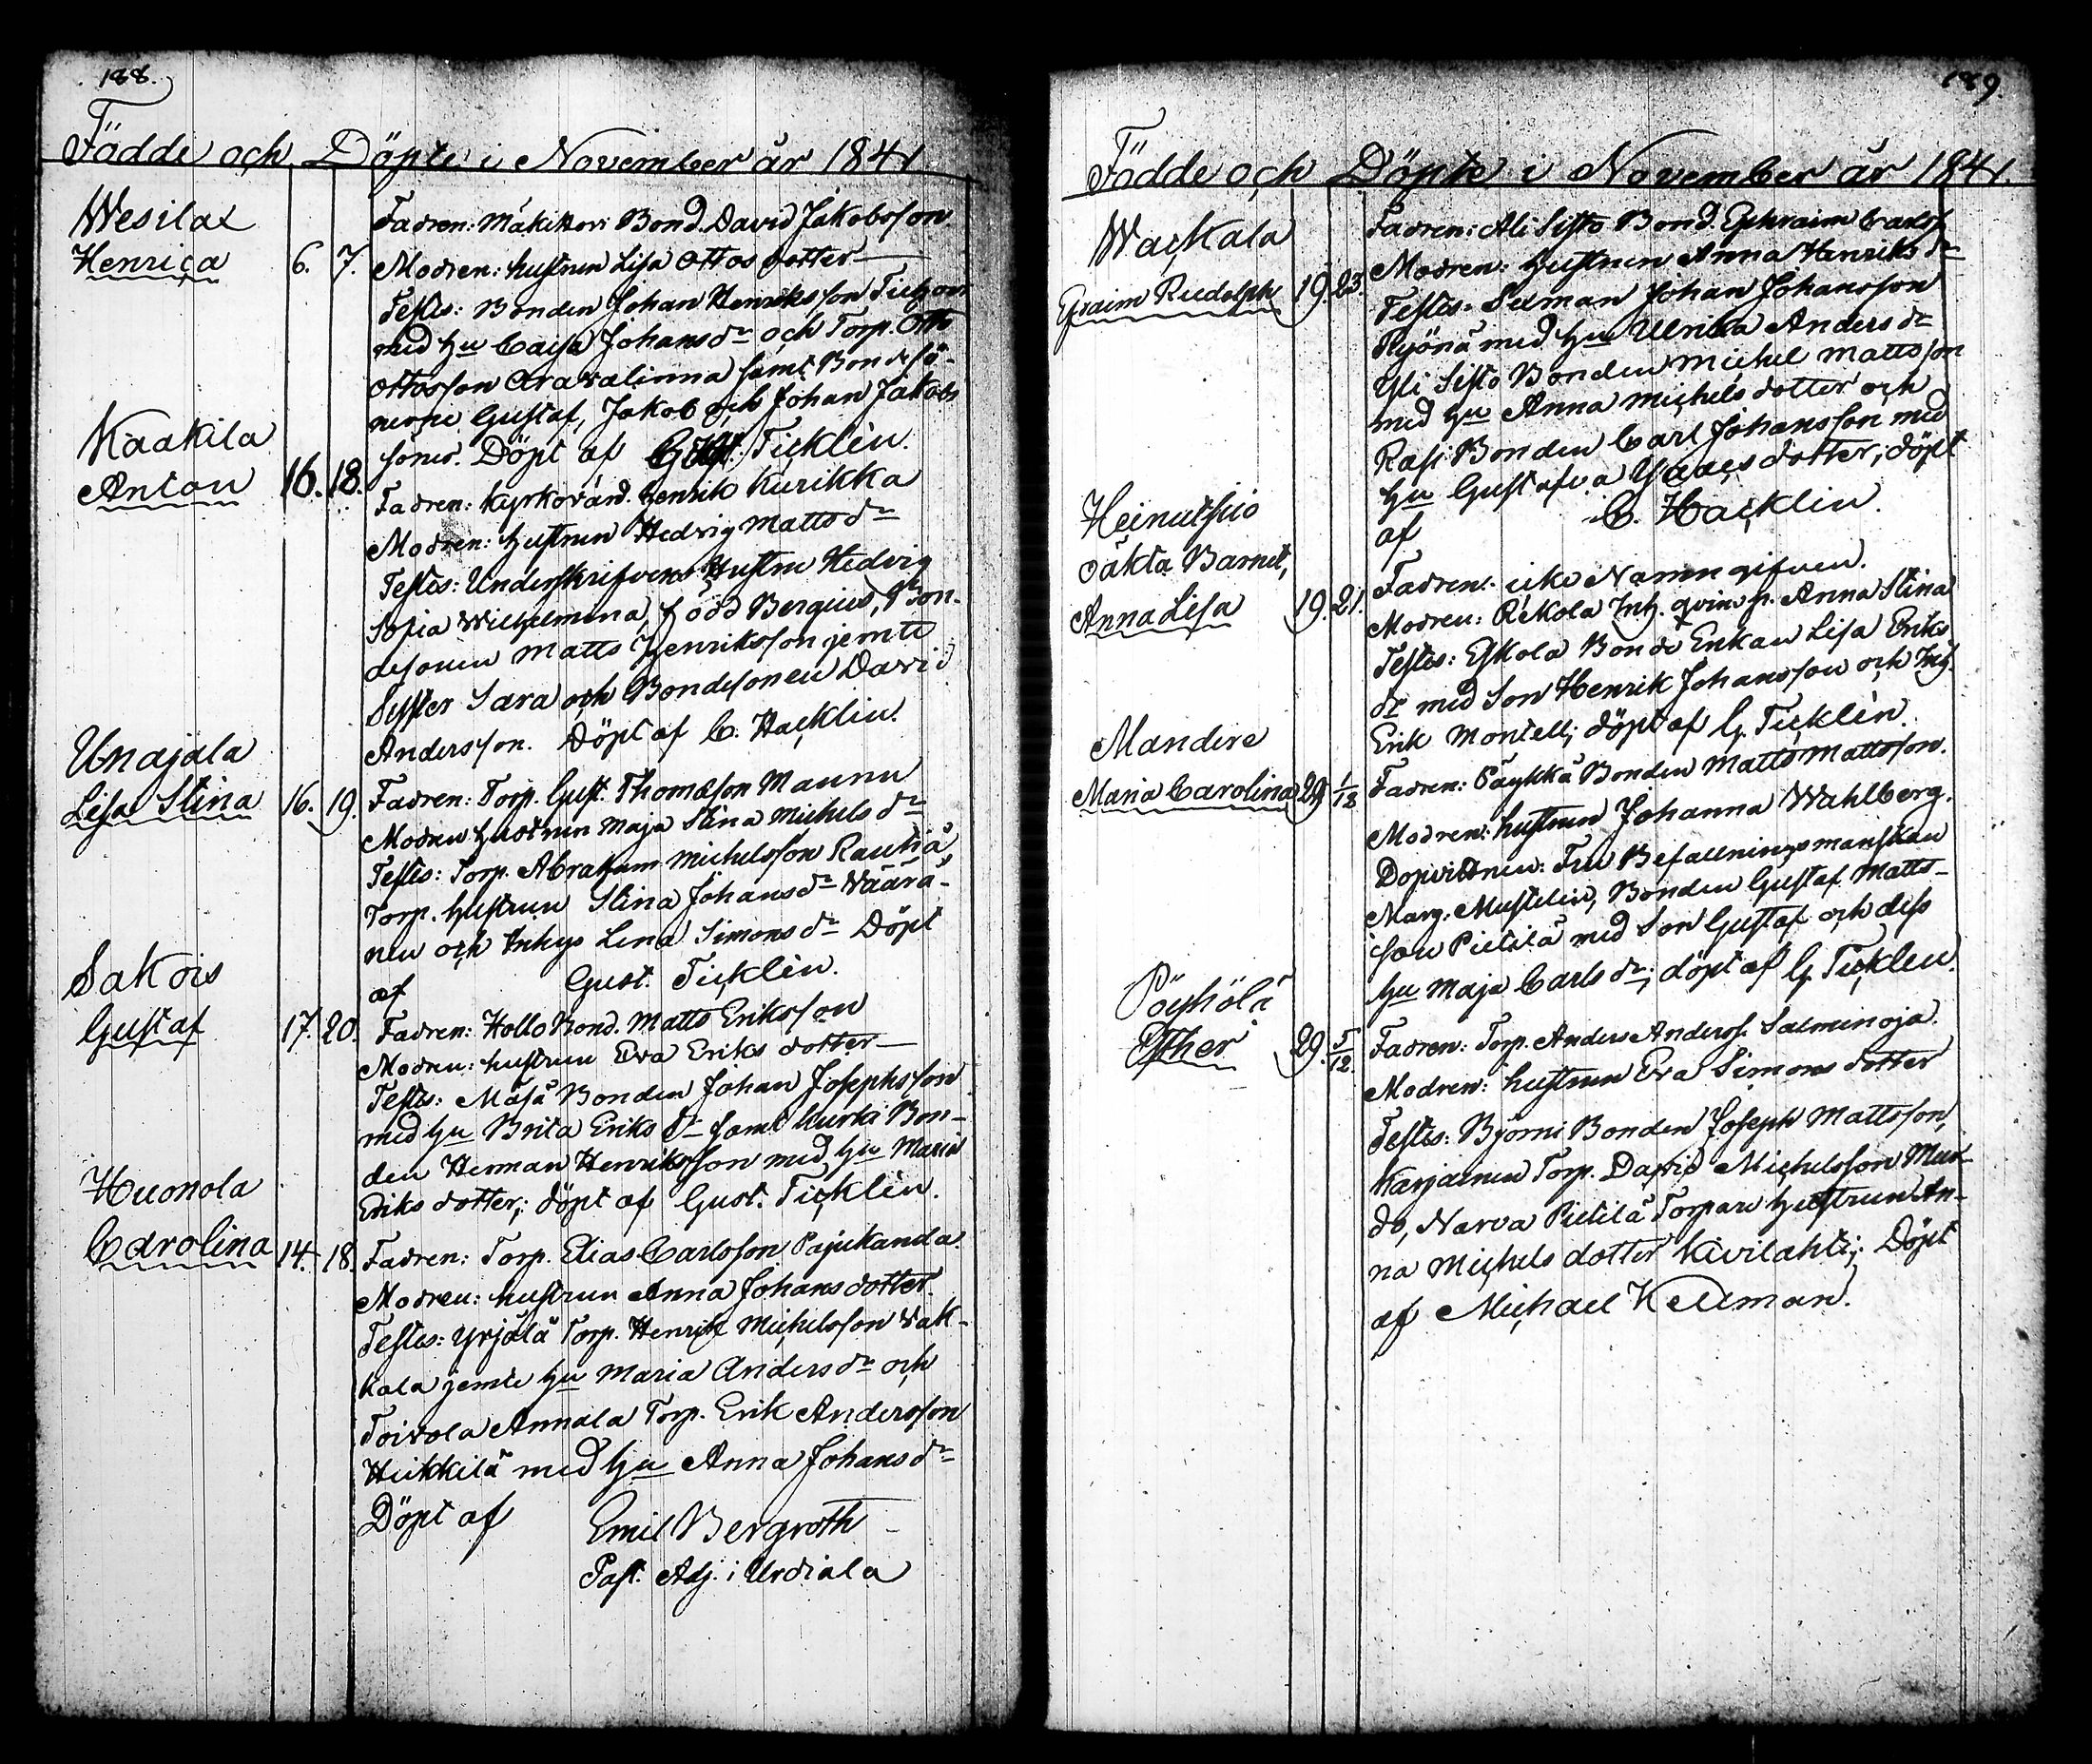 188.
Födde och Döpte i November år 1841
Wesilax
Henrica 6. 7.
Fadren: Mäkikkori Bond. David Jakobsson.
Modren: hustrun Lisa Ottos dotter
Testes: Bonden Johan Henriksson
med hu Caisa Johans dr och Torp. Otto
Ottosson Aravalinna samt Bondesö-
nerne Gustaf, Jakob och Johan Jakobs
söner. Döpt af Gust. Ticklén.
Kaakila
Anton 16. 18.
Fadren: Kyrkovärd. Henrik Kurikka
Modren: hustrun Hedvig Matts dr
Testes: Underskrifvens Hustru Hedvig
Sofia Wilhelmina, född Bergius, Bon-
desonen Matts Henriksson jemte
Syster Sara och Bondesonen David
Andersson. Döpt af C. Hacklin.
Unajala
Lisa Stina 16. 19.
Fadren: Torp. Gust. Thomasson Maunu
Modren hustrun Maja Stina Michels dr
Testes: Torp. Abraham Michelsson Rautiä,
Torp. hustrun Stina Johans dr Väärä-
nen och Inhys Lena Simons dr Döpt
af Gust. Ticklén.
Sakois
Gustaf 17. 20.
Fadren: Hollo Bond. Matts Eriksson
Modren: hustrun Eva Eriks dotter
Testes: Mäsä Bonden Johan Josephsson
med hu Brita Eriks dr samt Kurki Bon-
den Herman Henriksson med hu Maria
Eriks dotter; döpt af Gust. Ticklén.
Huonola
Carolina 14. 18.
Fadren: Torp. Elias Carlsson Pajukanda.
Modren: hustrun Anna Johans dotter.
Testes: Yrjälä Torp. Henrik Michelsson Vak-
kala jemte hu Maria Anders dr och
Toivola Annala Torp. Erik Andersson
Heikkilä med hu Anna Johans dr
Döpt af Emil Bergroth
Past. Adj. i Urdiala
189.
Födde och Döpte i November år 1841.
Wackala
Efraim Rudolph 19. 23.
Fadren: Ali Sisto Bond. Ephraim Carlss
Modren: hustrun Anna Henriks dr
Testes: Sexman Johan Johansson
Ryönä med hu Ulrika Anders dr
Yli Sisto Bonden Michel Mattsson
med hu Anna Michels dotter och
Rasi Bonden Carl Johansson med
hu Gustafva Isaacs dotter; döpt
af C. Hacklin.
Heinutsuo
oäkta Barnet,
Anna Lisa 19. 21.
Fadren: icke Namngifven.
Modren: Rekola Inh. qvinsp. Anna Stina
Testes: Eskola Bonde Enkan Lisa Eriks
dr med Son Henrik Johansson och Inh.
Erik Montell; döpt af G. Ticklén.
Mandere
Maria Carolina 29. 1/12
Fadren: Päykkä Bonden Matts Mattsson.
Modren: hustrun Johanna Wahlberg.
Dopvittnen: Fru Befallningsmanskan
Marg. Mustelin, Bonden Gustaf Matts-
son Pietilä med Son Gustaf och dess
hu Maja Carls dr; döpt af G. Ticklén.
Pöyhölä
Esther 29. 5/12
Fadren: Torp. Anders Anderss. Salminoja.
Modren: hustrun Eva Simons dotter
Testes: Björni Bonden Joseph Mattsson,
Karjainen Torp. David Michelsson Mur-
do, Narva Pietilä Torpare hustrun An-
na Michels dotter Kivilahti; Döpt
af Michael Kellman.